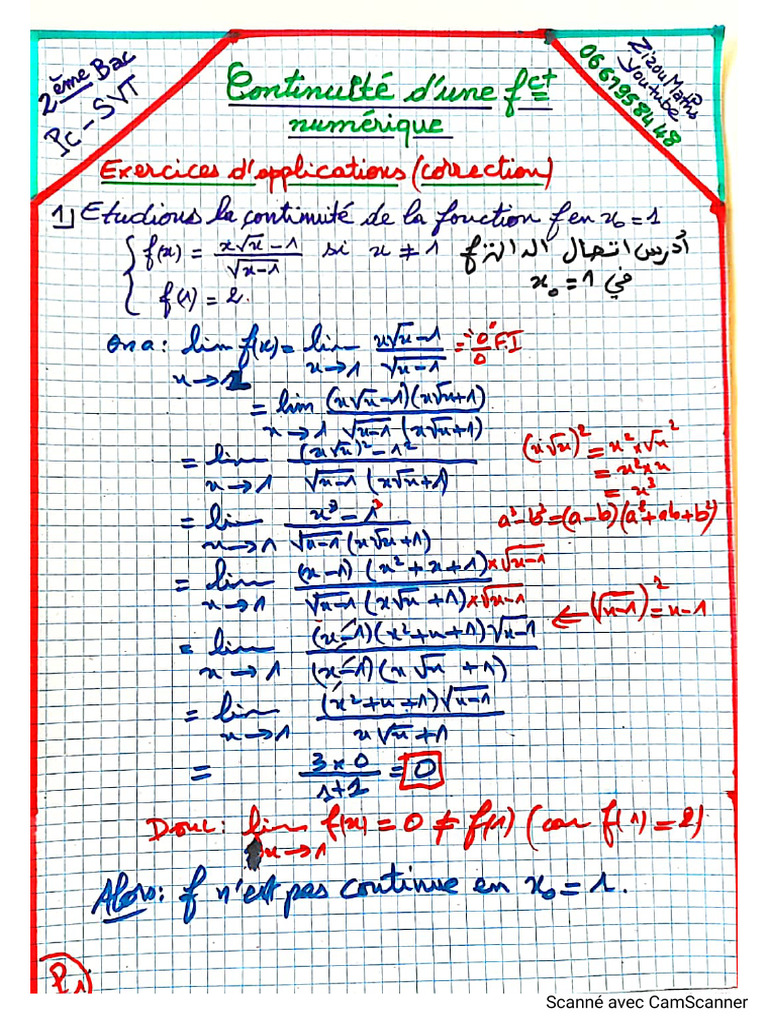 2ème Bac
Pc-SVT
Continuité d'une fct
numérique
ZizouMaths
Youtube
0667958448
Exercices d'applications (correction)
1) Etudions la continuité de la fonction f en x₀ = 1
{ f(x) = (x√x - 1)/√(x-1) si x ≠ 1
f(1) = 2.
أدرس اتصال الدالة f
في x₀ = 1
On a : lim f(x) = lim (x√x - 1)/√(x-1) = "0/0" F.I
x→1 x→1
= lim (x√x - 1)(x√x + 1) / √(x-1) (x√x + 1)
x→1
= lim ((x√x)² - 1²) / √(x-1) (x√x + 1)
x→1
(x√x)² = x² × √x²
= x² × x
= x³
= lim (x³ - 1³) / √(x-1) (x√x + 1)
x→1
a³ - b³ = (a - b)(a² + ab + b²)
= lim (x-1)(x² + x + 1) × √(x-1) / √(x-1) (x√x + 1) × √(x-1)
x→1
⇐ (√(x-1))² = x - 1
= lim (x-1)(x² + x + 1)√(x-1) / (x-1)(x√x + 1)
x→1
= lim (x² + x + 1)√(x-1) / x√x + 1
x→1
= 3 × 0 / 1 + 1 = 0
Donc : lim f(x) = 0 ≠ f(1) (car f(1) = 2)
x→1
Alors : f n'est pas continue en x₀ = 1.
P1
Scanné avec CamScanner